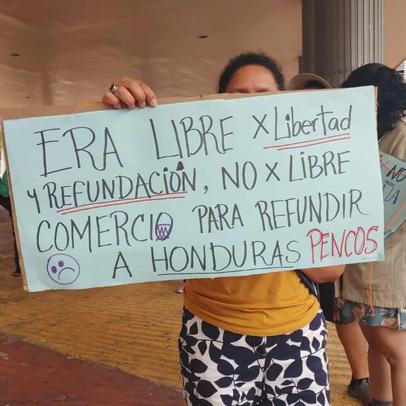 ERA LIBRE X Libertad
Y REFUNDACIÓN, NO X LIBRE
COMERCIO PARA REFUNDIR
A HONDURAS PENCOS
NO